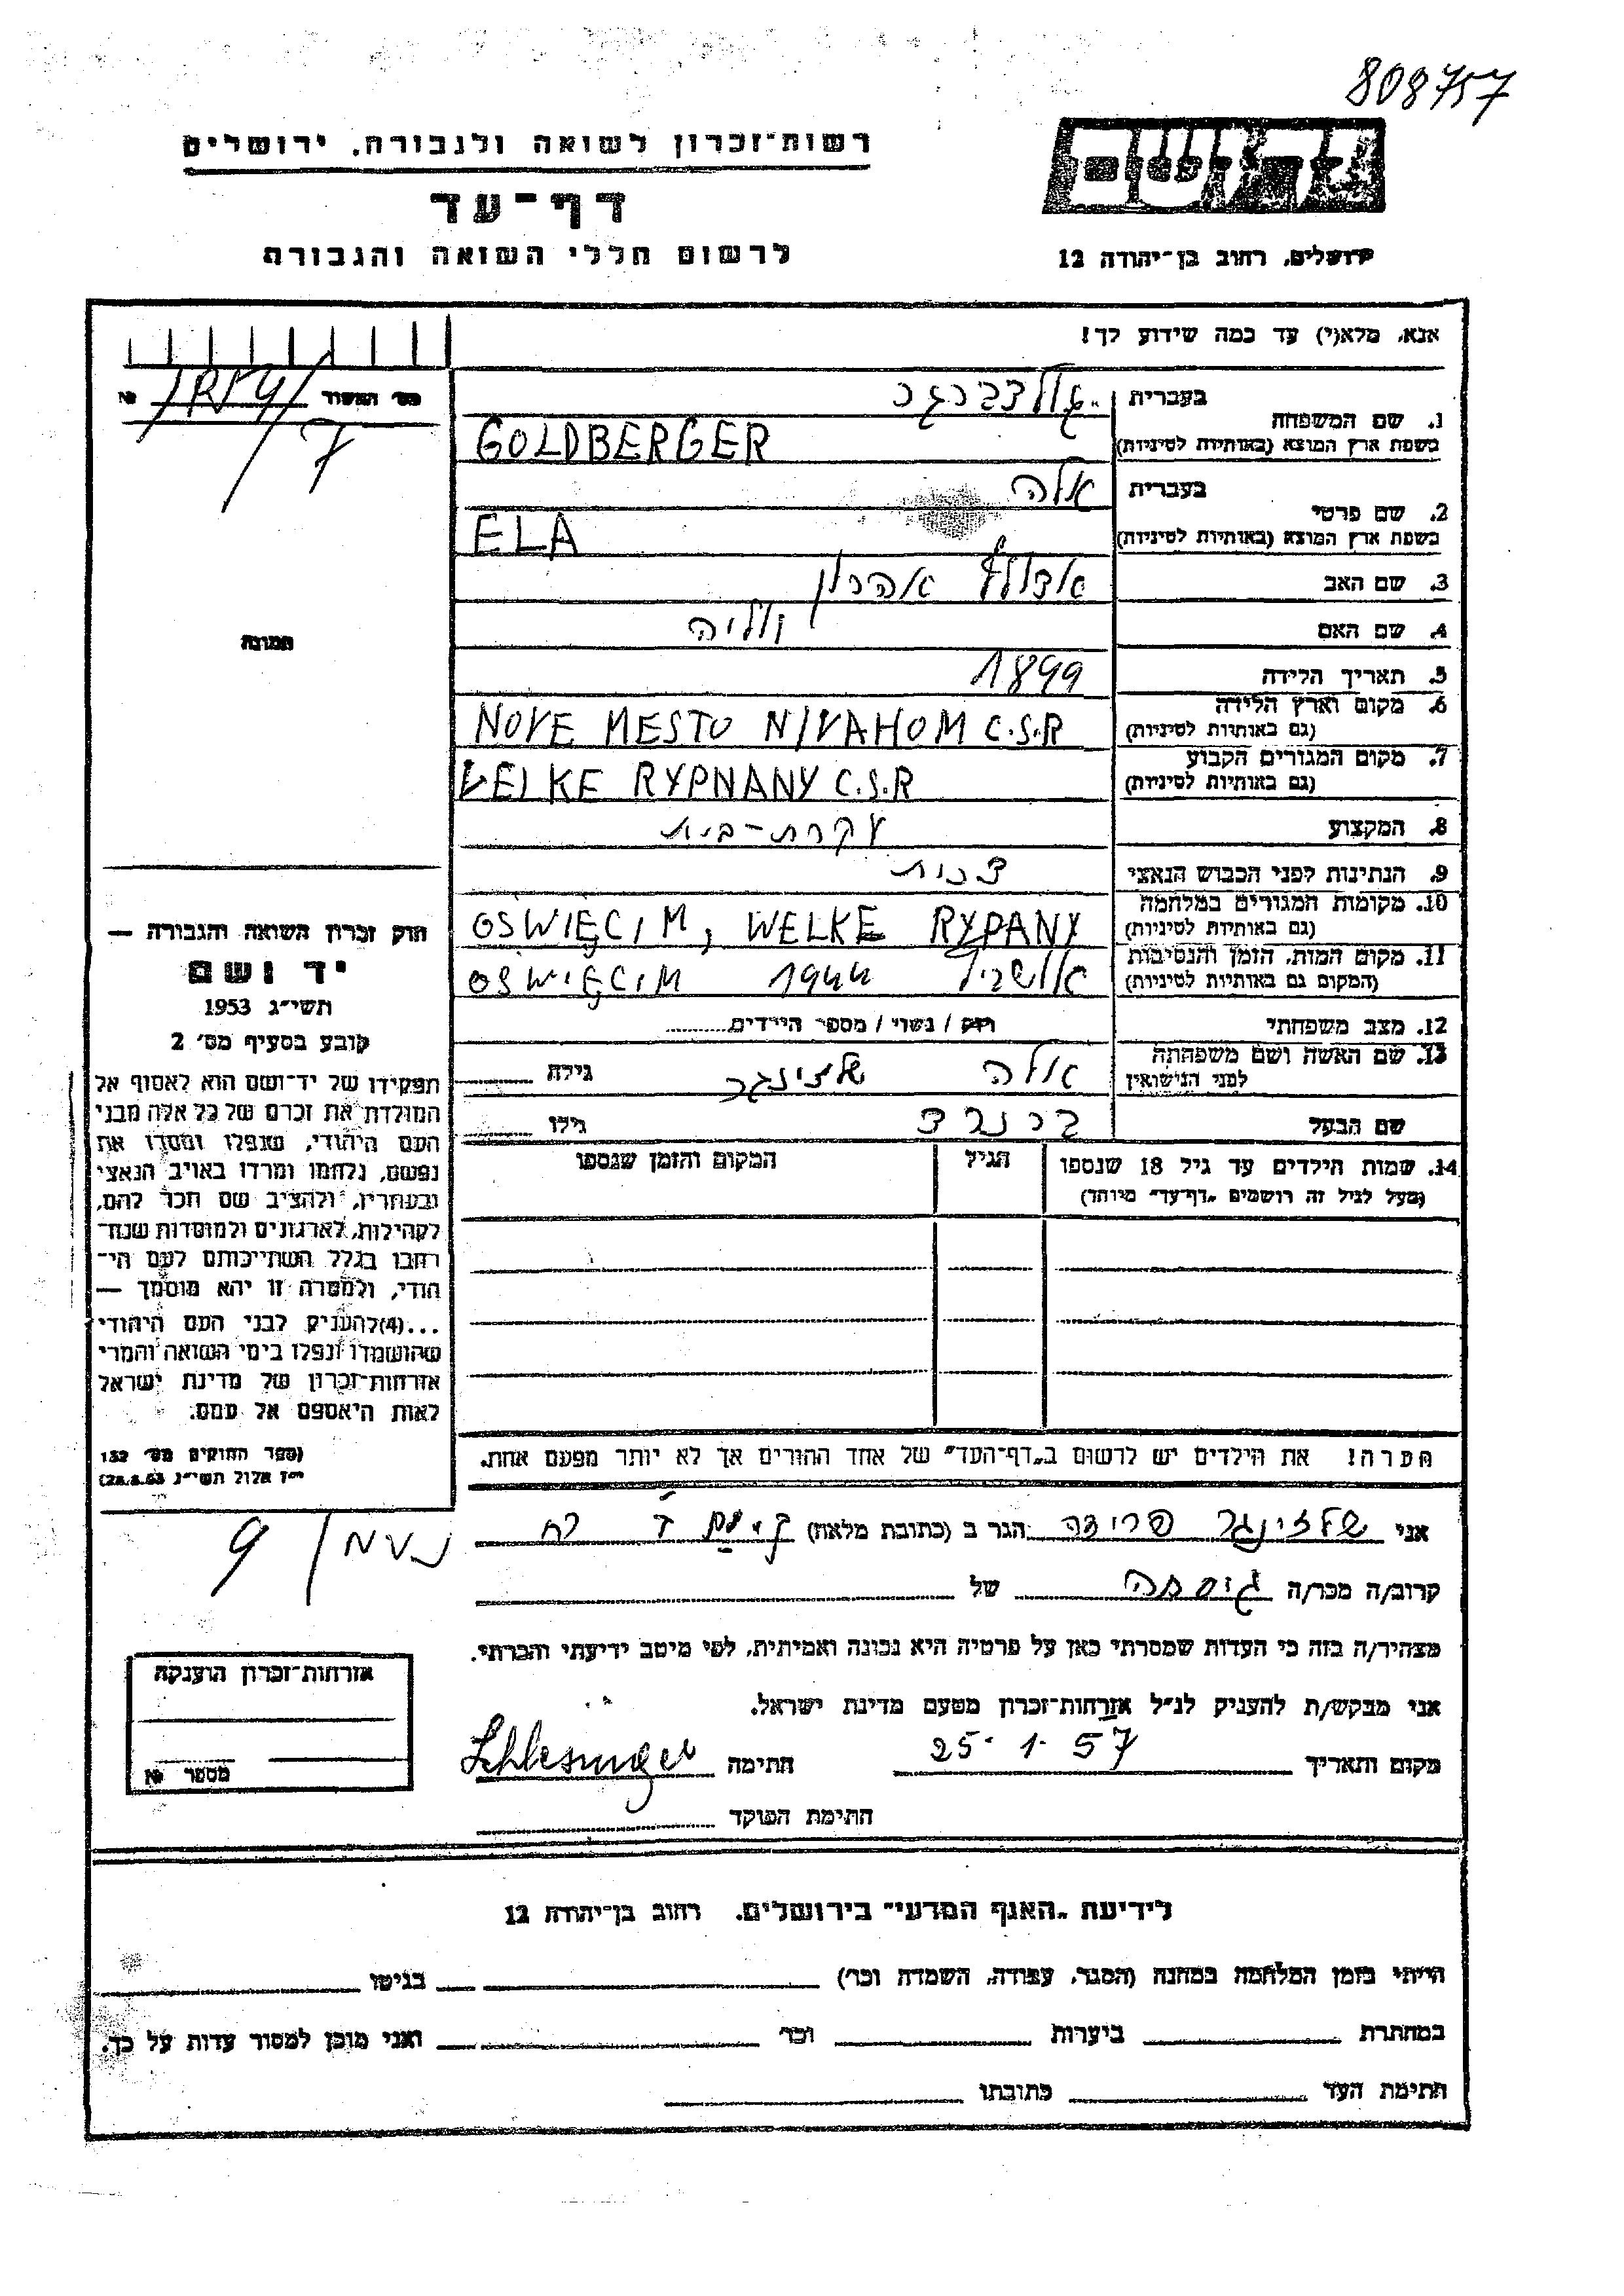 808757
רשות־זכרון לשואה ולגבורה, ירושלים
דף־עד
לרשום חללי השואה והגבורה
יד ושם
ירושלים, רחוב בן־יהודה 12
אנא, מלא(י) עד כמה שידוע לך!
מס' האשור №
1. שם המשפחה
בעברית גולדברגר
בשפת ארץ המוצא (באותיות לטיניות) GOLDBERGER
2. שם פרטי
בעברית אלה
בשפת ארץ המוצא (באותיות לטיניות) ELA
3. שם האב אדולף אהרון
4. שם האם
5. תאריך הלידה 1899
6. מקום וארץ הלידה (גם באותיות לטיניות) NOVE MESTO N/VAHOM C.S.R
7. מקום המגורים הקבוע (גם באותיות לטיניות) VELKE RYPNANY C.S.R
8. המקצוע עקרת-בית
9. הנתינות לפני הכבוש הנאצי צ'כית
10. מקומות המגורים במלחמה (גם באותיות לטיניות) OSWIĘCIM, WELKE RYPANY
11. מקום המות, הזמן והנסיבות (המקום גם באותיות לטיניות) אושביץ 1944 OSWIĘCIM
12. מצב משפחתי רוק / נשוי / מספר הילדים
13. שם האשה ושם משפחתה לפני הנישואין אלה שלזינגר גילה
שם הבעל ברנרד גילו
14. שמות הילדים עד גיל 18 שנספו
(מעל לגיל זה רושמים „דף־עד” מיוחד)
הגיל
המקום והזמן שנספו
הערה! את הילדים יש לרשום ב„דף־העד” של אחד ההורים אך לא יותר מפעם אחת.
תמונה
חוק זכרון השואה והגבורה —
יד ושם
תשי״ג 1953
קובע בסעיף מס׳ 2
תפקידו של יד־ושם הוא לאסוף אל
המולדת את זכרם של כל אלה מבני
העם היהודי, שנפלו ומסרו את
נפשם, נלחמו ומרדו באויב הנאצי
ובעוזריו, ולהציב שם וזכר להם,
לקהילות, לארגונים ולמוסדות שנח־
רבו בגלל השתייכותם לעם הי־
הודי, ולמטרה זו יהא מוסמך —
...(4)להעניק לבני העם היהודי
שהושמדו ונפלו בימי השואה והמרי
אזרחות־זכרון של מדינת ישראל
לאות היאספם אל עמם.
(ספר החוקים מס׳ 132
י״ז אלול תשי״ג 28.8.53)
אני שלזינגר פרידה הגר ב (כתובת מלאה)
קרוב/ה מכר/ה גיסה של
מצהיר/ה בזה כי העדות שמסרתי כאן על פרטיה היא נכונה ואמיתית, לפי מיטב ידיעתי והכרתי.
אני מבקש/ת להעניק לנ״ל אזרחות־זכרון מטעם מדינת ישראל.
מקום ותאריך 25. 1. 57 חתימה Schlesinger
חתימת הפוקד
אזרחות־זכרון הוענקה
מספר №
לידיעת „האגף המדעי” בירושלים, רחוב בן־יהודה 12
הייתי בזמן המלחמה במחנה (הסגר, עבודה, השמדה וכו׳) בגיטו
במחתרת ביערות וכו׳ ואני מוכן למסור עדות על כך.
חתימת העד כתובתו